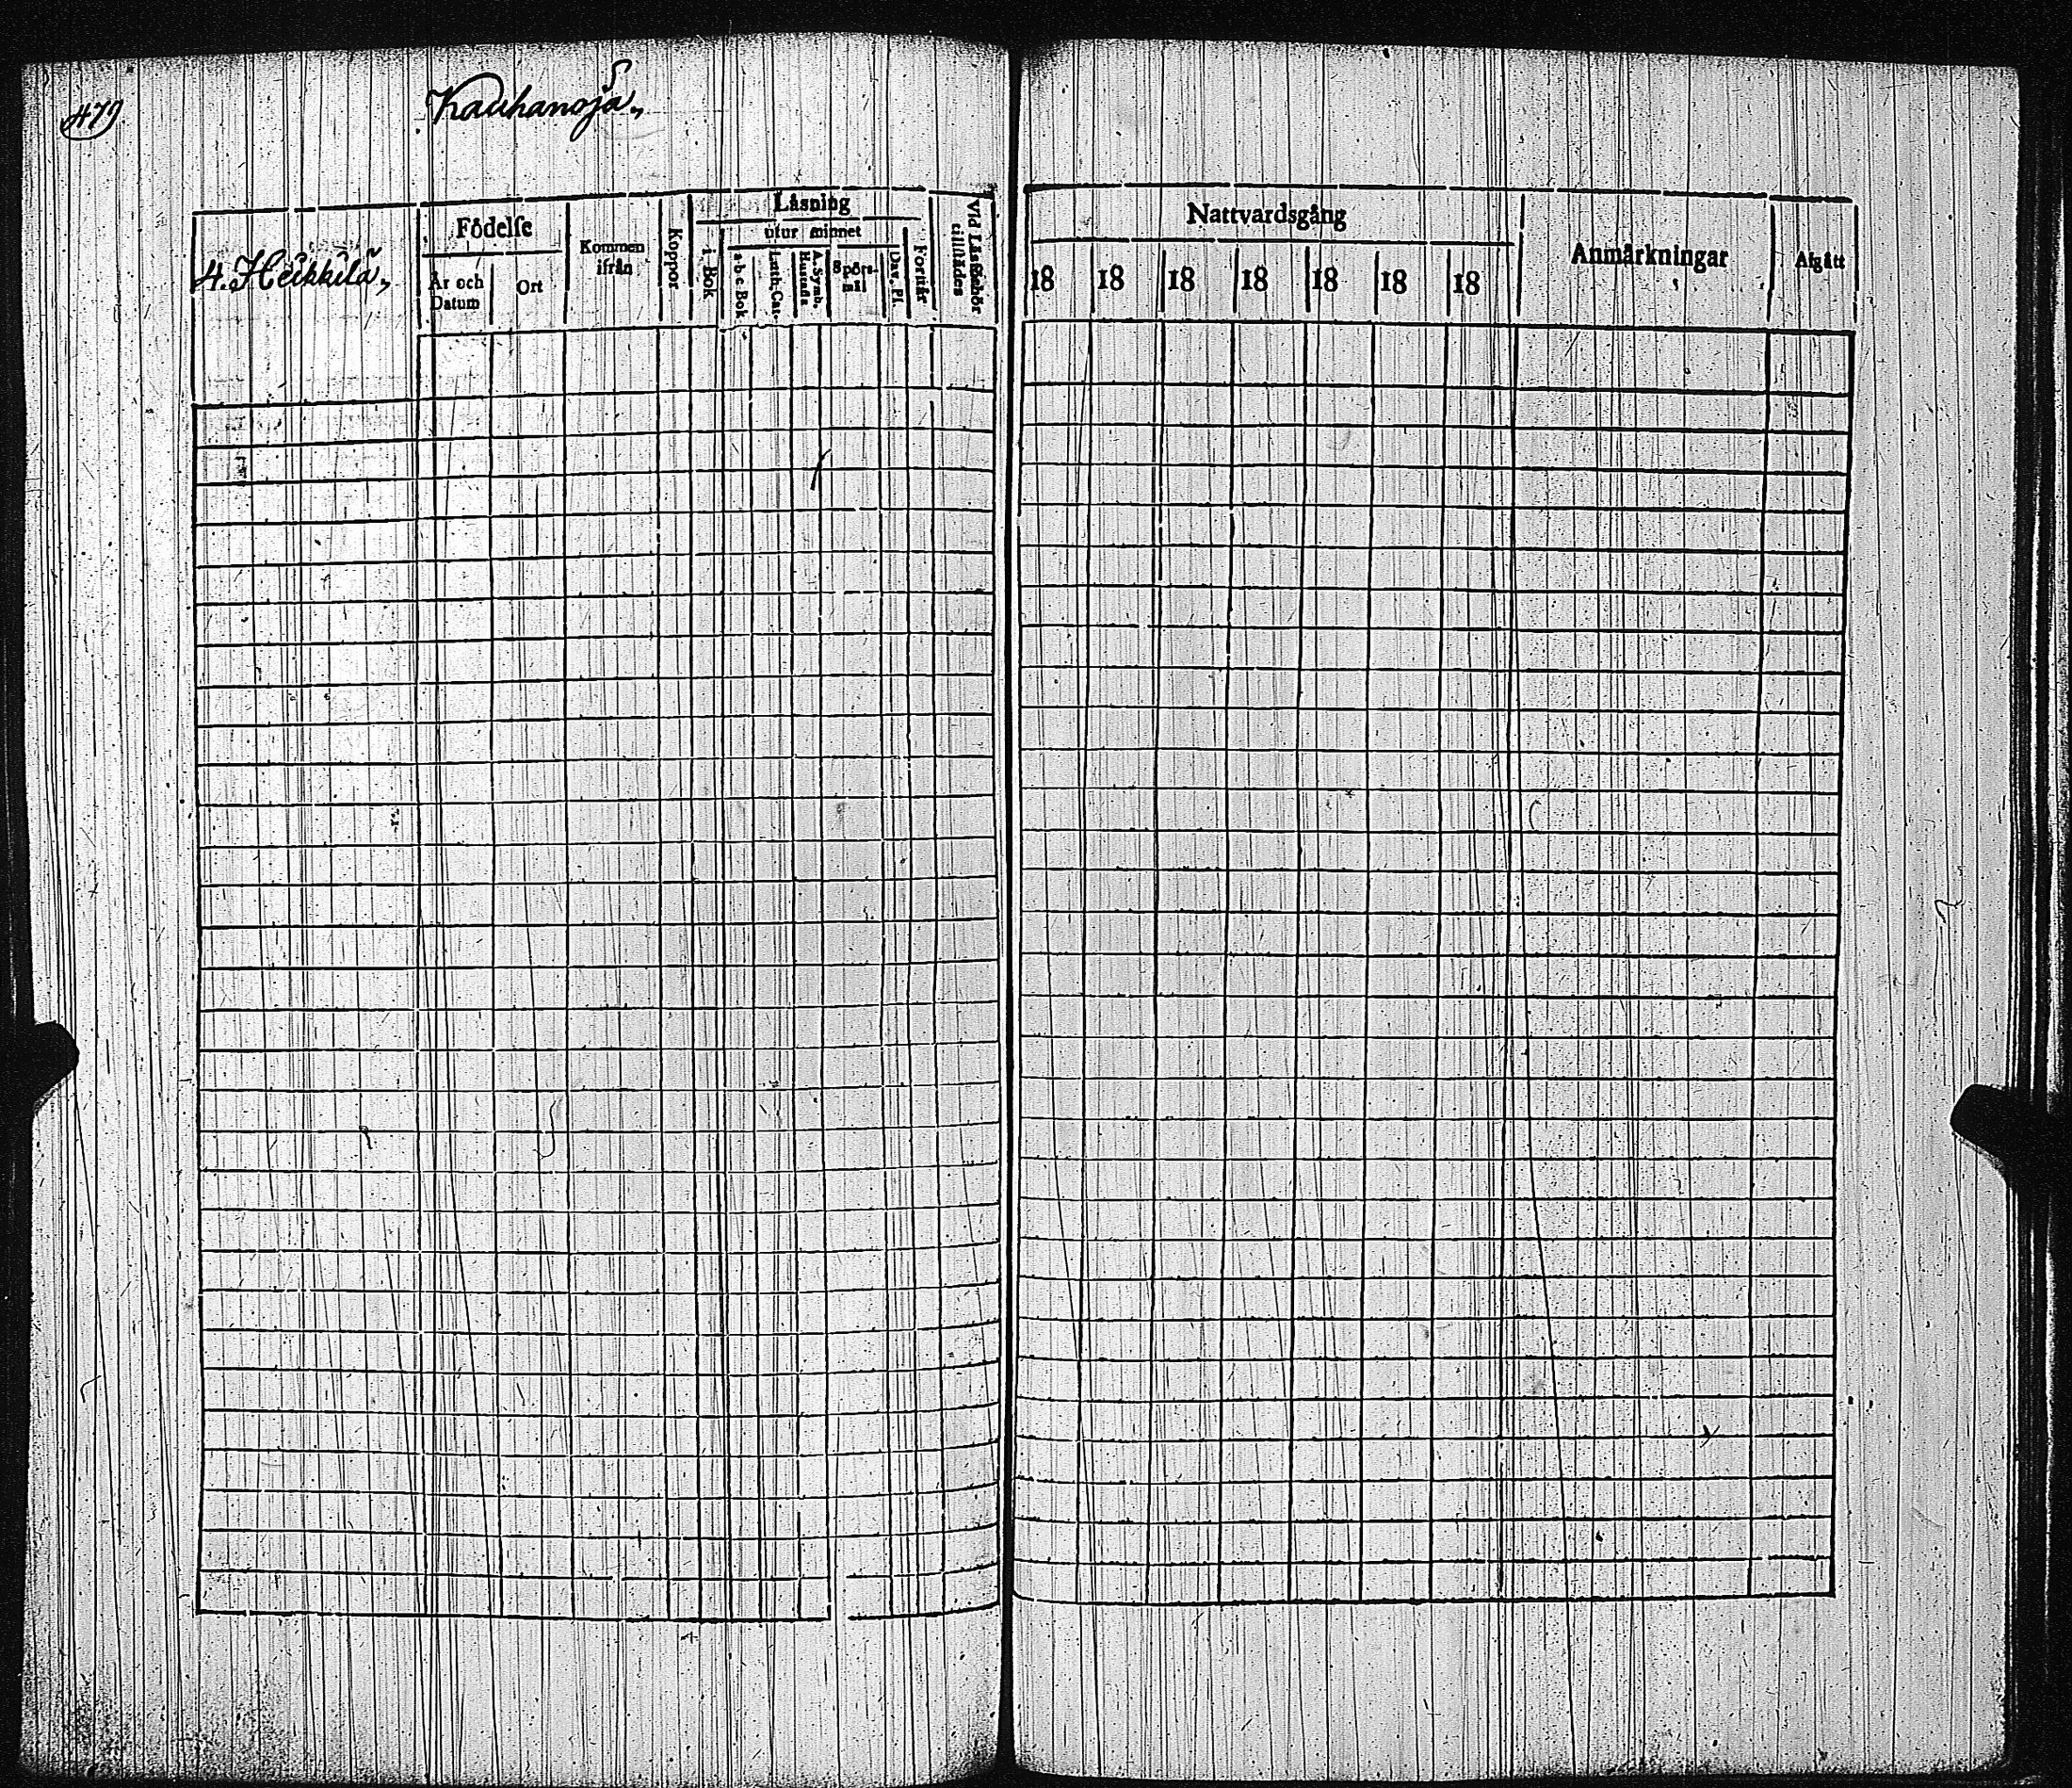 479
Kauhanoja,
4. Heikkilä,
Födelse
År och Datum
Ort
Kommen ifrån
Koppor
Läsning
i Bok
utur minnet
a-b-c-Bok
Luth. Cat.
A. Symb. Hustafla
Spörsmål
Dav. Ps.
Förstår
Vid Läsförhör tillstädes
Nattvardsgång
18 18 18 18 18 18 18
Anmärkningar
Afgått